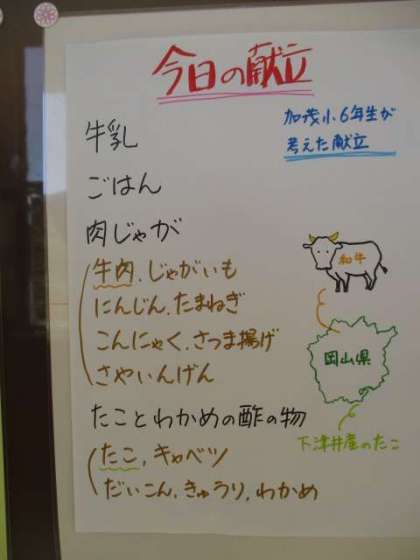 今日の献立
加茂小6年生が
考えた献立
牛乳
ごはん
肉じゃが
牛肉、じゃがいも
にんじん、たまねぎ
こんにゃく、さつま揚げ
さやいんげん
たことわかめの酢の物
たこ、キャベツ
だいこん、きゅうり、わかめ
和牛
岡山県
下津井産のたこ